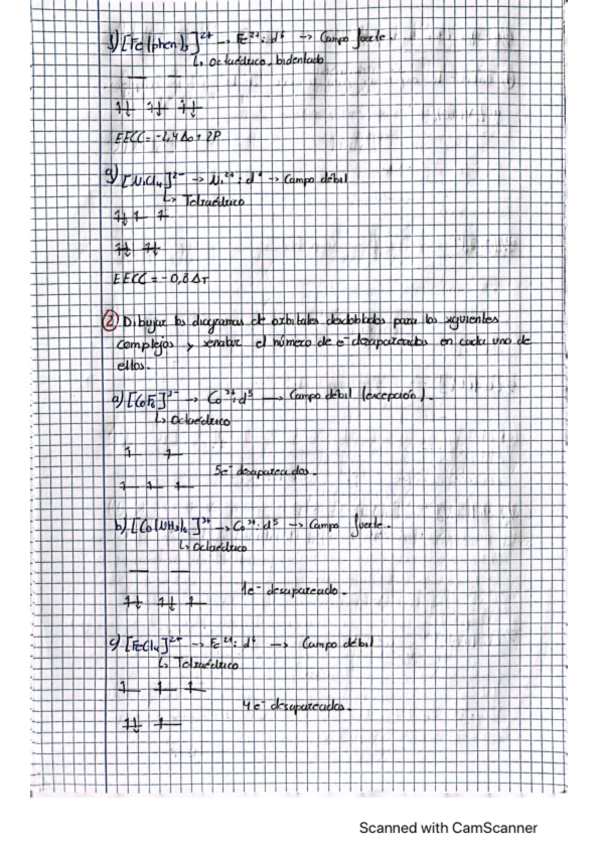 f) [Fe(phen)₃]²⁺ → Fe²⁺: d⁶ → Campo fuerte.
↳ octaédrico, bidentado
EECC = -2,4Δo + 2P
g) [NiCl₄]²⁻ → Ni²⁺: d⁸ → Campo débil
↳ Tetraédrico
EECC = -0,8Δт
② Dibujar los diagramas de orbitales desdoblados para los siguientes
complejos y señalar el número de e⁻ desapareados en cada uno de
ellos.
a) [CoF₆]³⁻ → Co³⁺: d⁵ → Campo débil (excepción).
↳ Octaédrico
5e⁻ desapareados.
b) [Co(NH₃)₆]³⁺ → Co³⁺: d⁵ → Campo fuerte.
↳ Octaédrico
1e⁻ desapareado.
c) [FeCl₄]²⁺ → Fe²⁺: d⁶ → Campo débil
↳ Tetraédrico
4e⁻ desapareados.
Scanned with CamScanner